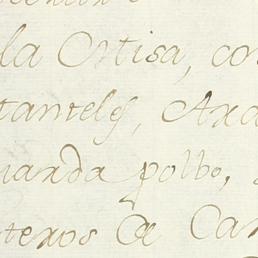 la Ortisa, con
tanteles, Ara
uarda polbo,
teros de Car